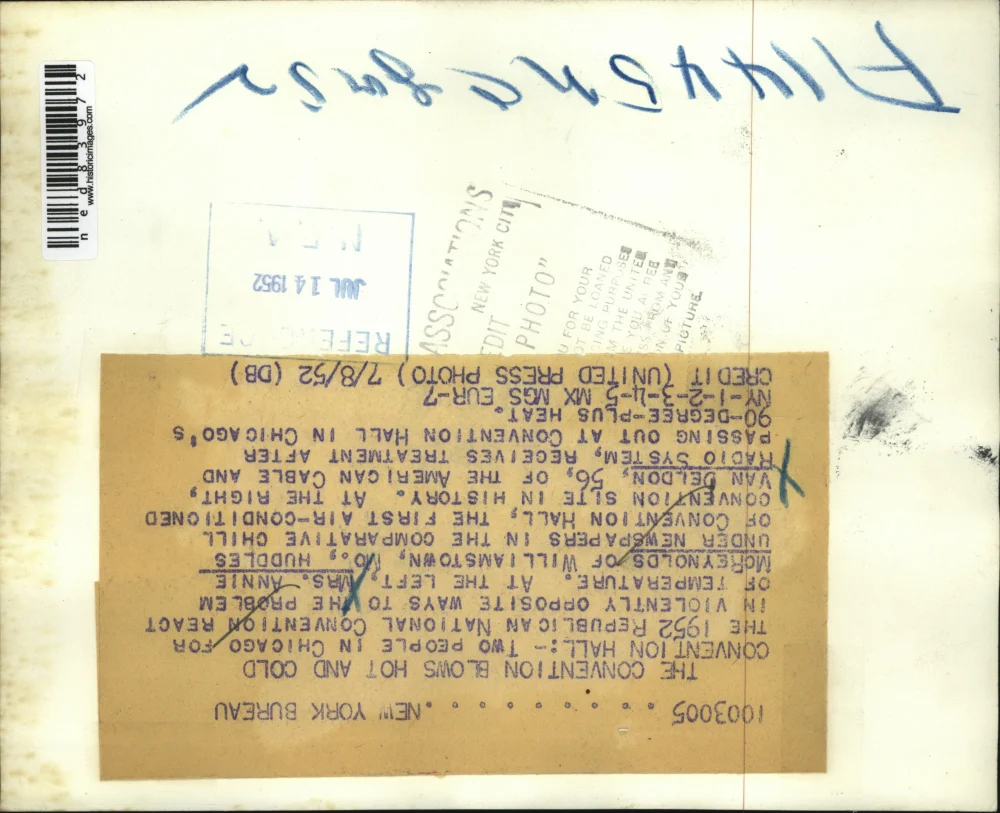 1003005 . . . . . . . . . . .NEW YORK BUREAU
THE CONVENTION BLOWS HOT AND COLD
CONVENTION HALL:- TWO PEOPLE IN CHICAGO FOR
THE 1952 REPUBLICAN NATIONAL CONVENTION REACT
IN VIOLENTLY OPPOSITE WAYS TO THE PROBLEM
OF TEMPERATURE. AT THE LEFT, MRS. ANNIE
MCREYNOLDS OF WILLIAMSTOWN, MO., HUDDLES
UNDER NEWSPAPERS IN THE COMPARATIVE CHILL
OF CONVENTION HALL, THE FIRST AIR-CONDITIONED
CONVENTION SITE IN HISTORY. AT THE RIGHT,
VAN DELDON, 56, OF THE AMERICAN CABLE AND
RADIO SYSTEM, RECEIVES TREATMENT AFTER
PASSING OUT AT CONVENTION HALL IN CHICAGO'S
90-DEGREE-PLUS HEAT.
NY-1-2-3-4-5 MX MGS EUR-7
CREDIT (UNITED PRESS PHOTO) 7/8/52 (DB)
JUL 14 1952
N.E.A.
NEW YORK CITY
PHOTO"
U FOR YOUR
BE LOANED
ING PURPOSES
THE UNITED
YOU
FROM ANY
OF YOUR
PICTURE.
ned83972
www.historicimages.com